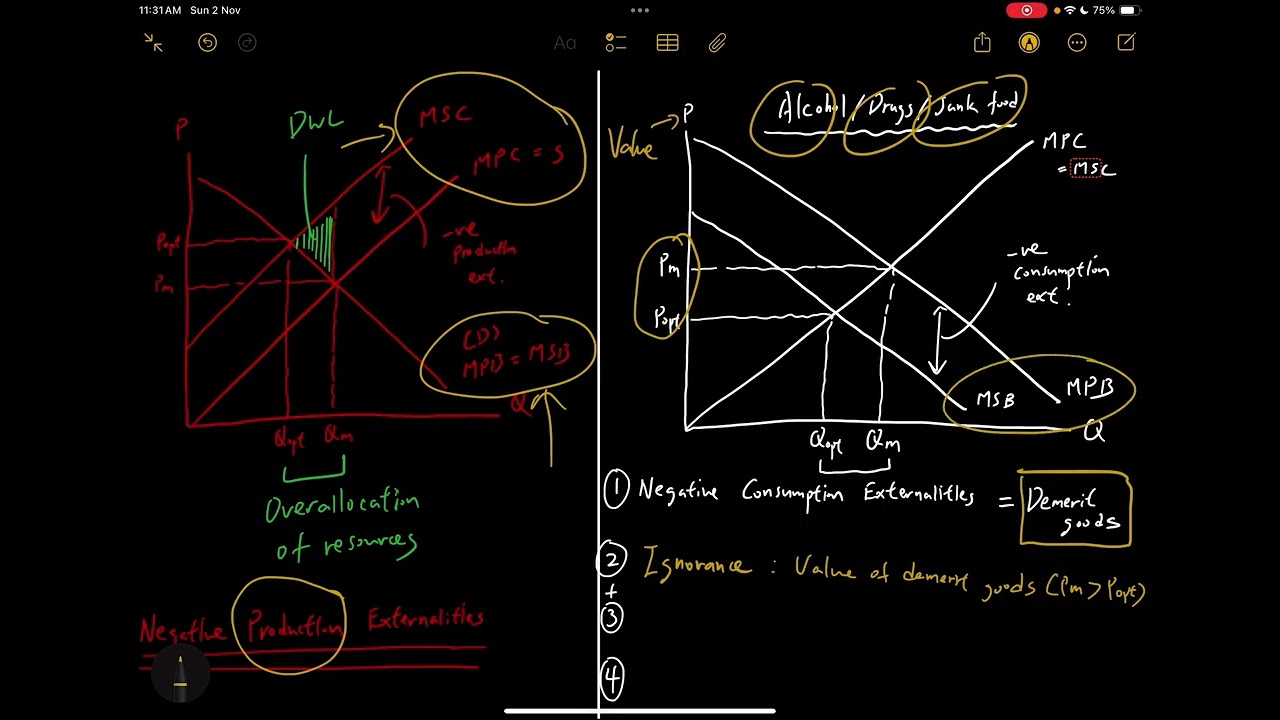 11:31 AM Sun 2 Nov
75%
Aa
DWL
MSC
MPC = S
P
Popt
Pm
-ve
production
ext.
(D)
MPB = MSB
Q
Qopt Qm
Overallocation
of resources
Negative Production Externalities
Alcohol / Drugs / Junk food
Value
P
MPC
= MSC
Pm
Popt
-ve
consumption
ext.
MSB MPB
Q
Qopt Qm
① Negative Consumption Externalities = Demerit
goods
② Ignorance : Value of demerit goods (Pm > Popt)
+
③
④